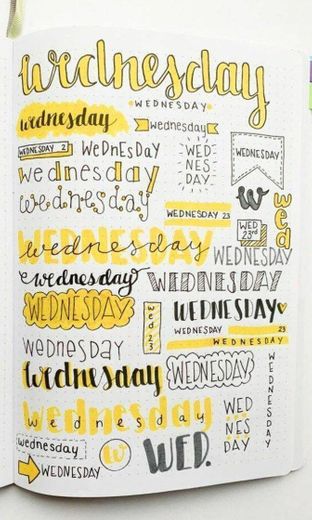 wednesday
WEDNESDAY
wednesday
wednesday
WEDNESDAY 2
WeDnEsDaY
WED
NES
DAY
WEDNESDAY
wednesday
wednesday
w
wed
WEDNESDAY 23
WED
23rd
wednesday
wednesday
WEDNESDAY
wednesday
WEDNESDAY
WEDNESDAY
wed 23
WEDNESDAY
WEDNESDAY 23
WEDNESDAY
wednesday
wednesday
WEDNESDAY
WEDNESDAY
wednesday
wednesday
WED
NES
DAY
wednesday
w
WED.
WEDNESDAY